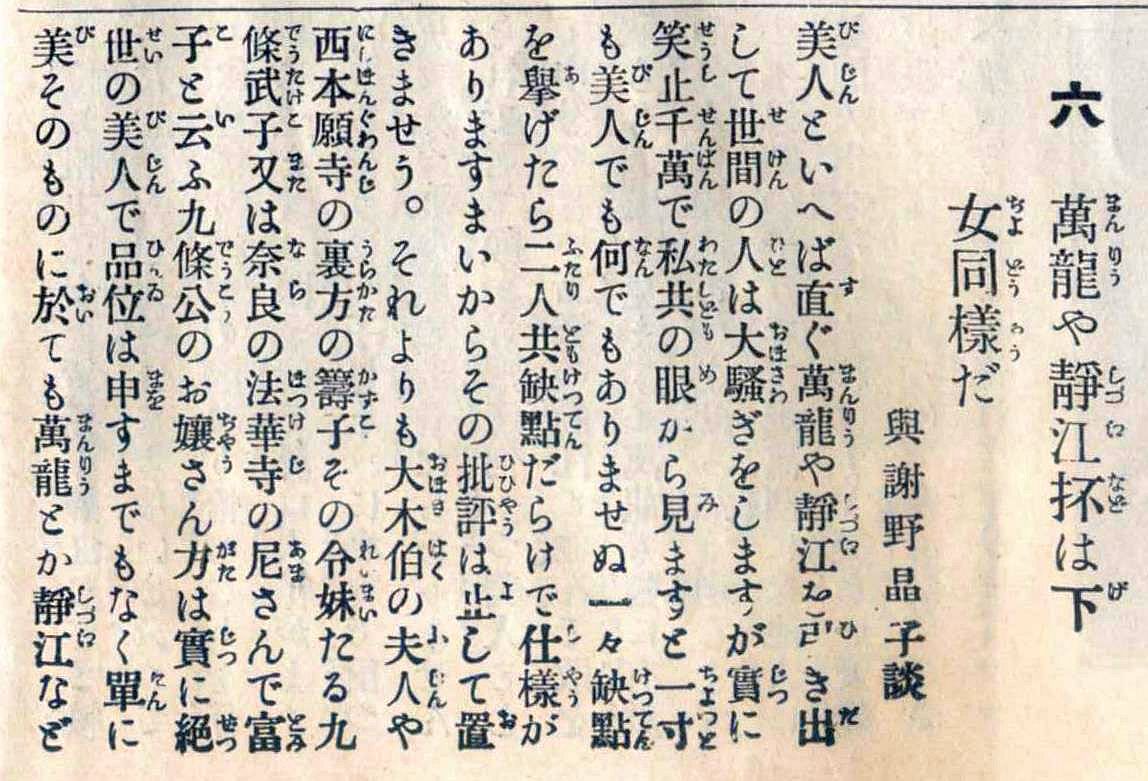 六
萬龍や靜江抔は下
女同樣だ
與謝野晶子談
美人といへば直ぐ萬龍や靜江を引き出
して世間の人は大騷ぎをしますが實に
笑止千萬で私共の眼から見ますと一寸
も美人でも何でもありませぬ一々缺點
を擧げたら二人共缺點だらけで仕樣が
ありますまいからその批評は止して置
きませう。それよりも大木伯の夫人や
西本願寺の裏方の籌子その令妹たる九
條武子又は奈良の法華寺の尼さんで富
子と云ふ九條公のお孃さん方は實に絕
世の美人で品位は申すまでもなく單に
美そのものに於ても萬龍とか靜江など